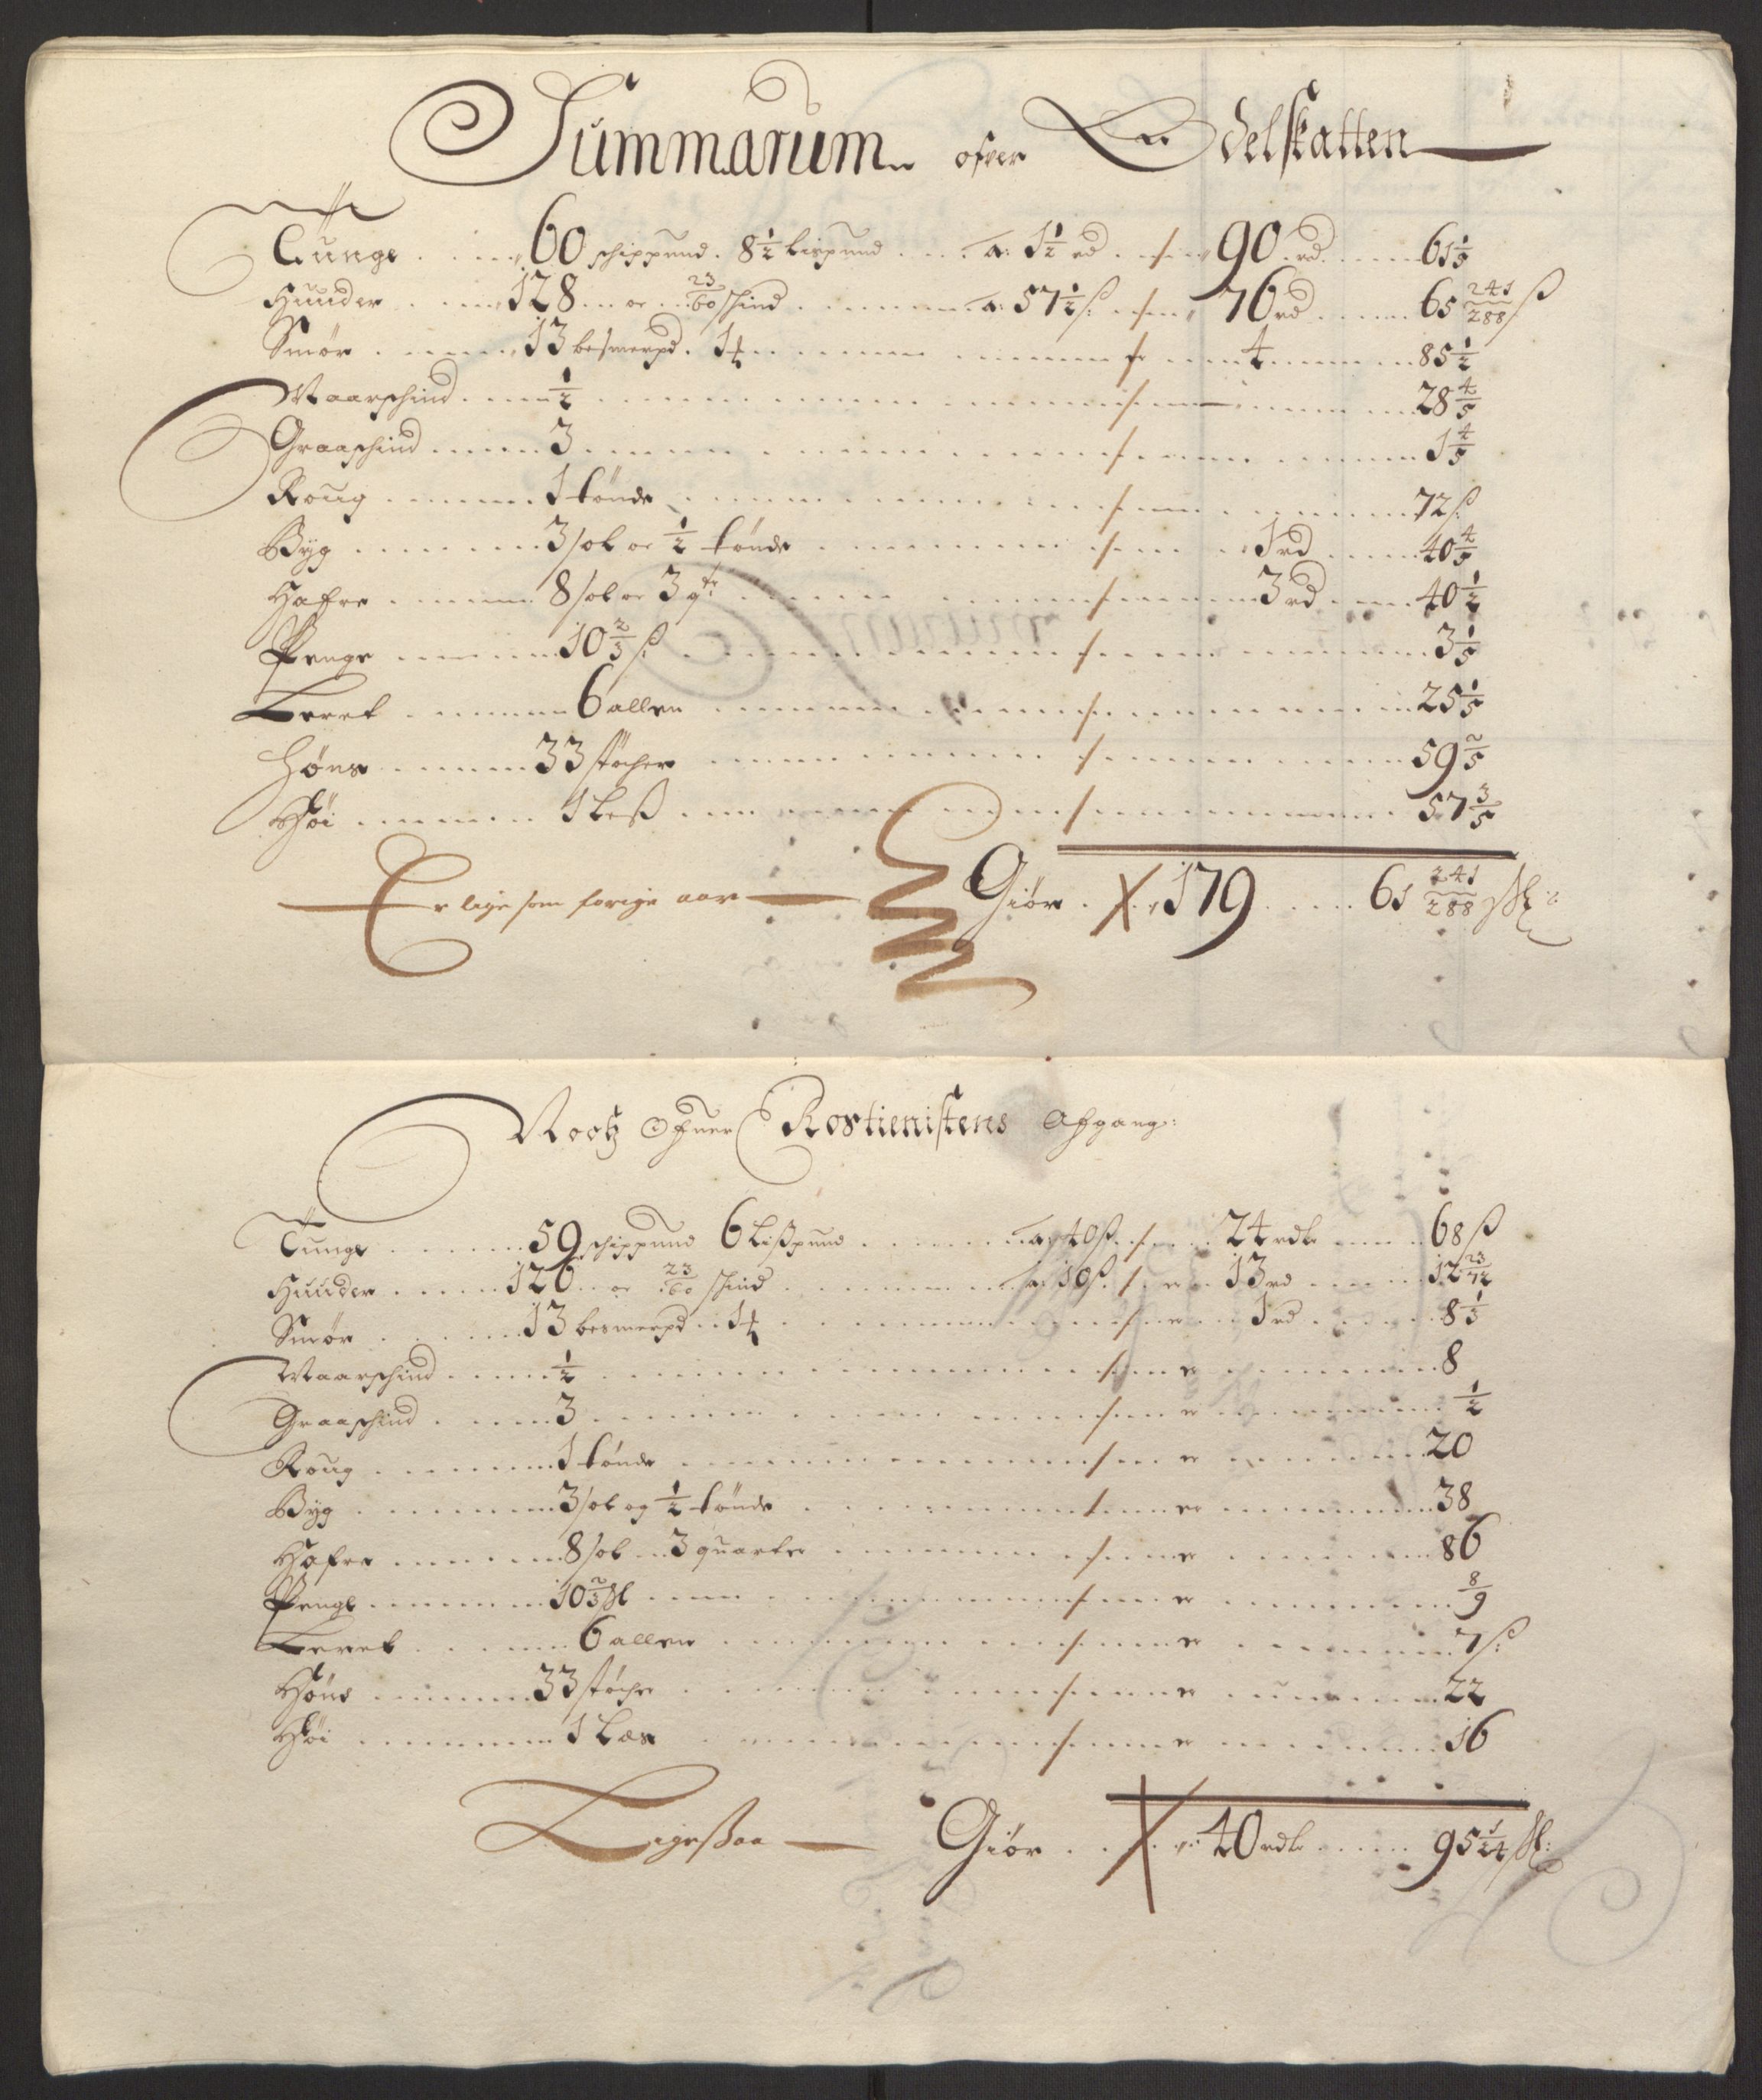 Summarum ofver Odelskatten
Tunge 60 schippund 8 1/2 lispund a: 1 1/2 rd 90 rd 61 1/5
Huuder 128 oc 23/60 schind a: 57 1/2 ß: 76 rd 65 241/288 ß
Smør 13 besmerpd. 14 4 85 1/2
Maarschind 1/2 28 4/5
Graaschind 3 1 4/5
Roug 1 tønde 72 ß:
Byg 3 sol oc 1/2 tønde 1 rd 40 4/5
Hafre 8 sol oc 3 qtr 3 rd 40 1/2
Penge 10 2/3 ß: 3 1/5
Leret 6 allen 25 1/5
Høns 33 støcher 59 2/5
Høi 1 Leß 57 3/5
Er lige som forige aar Giør 179 61 241/288 sk:
Nock Ofuer Rostienistens Afgang:
Tunge 59 schippund 6 Lißpund a: 40 ß 24 rdr 68 ß
Huuder 126 oc 23/60 schind a: 10 ß 13 rd 12 23/72
Smør 13 besmerpd 14 1 rd 8 1/3
Maarschind 1/2 8
Graaschind 3 1/2
Roug 1 tønde 20
Byg 3 sol og 1/2 tønde 38
Hafre 8 sol 3 quarter 86
Penge 10 2/3 sk 8/9
Leret 6 allen 7 ß:
Høns 33 støche 22
Høi 1 Læs 16
Ligeßaa Giør 40 rdr 95 1/24 sk: